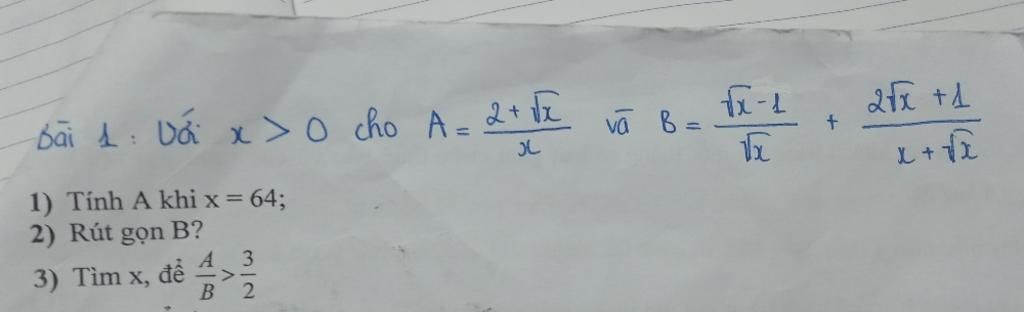 Bài 1: Với x > 0 cho A = \frac{2 + \sqrt{x}}{x} và B = \frac{\sqrt{x} - 1}{\sqrt{x}} + \frac{2\sqrt{x} + 1}{x + \sqrt{x}}
1) Tính A khi x = 64;
2) Rút gọn B?
3) Tìm x, để \frac{A}{B} > \frac{3}{2}